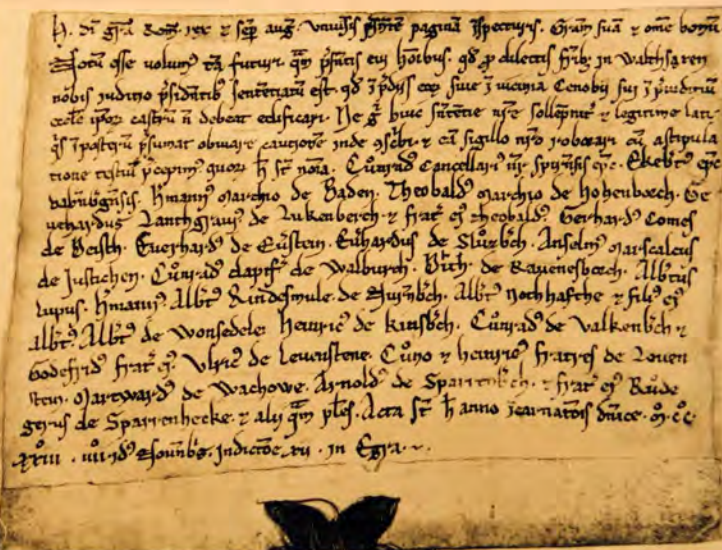 H. di gr̄a Rom. rex ⁊ sēp aug. Univ̄sis p̄sentē paginā īspecturis. Gr̄am suā ⁊ om̄e bonū
Notū esse volumꝰ tā futuris q̄m p̄sentis evi hōibus. qd̄ ꝓ dilectis fr̄ibꝫ in Walthsaxen
nobis iudicio p̄sidentibꝰ sentētiatū est. qd̄ ī p̄diis eoꝝ sive ī vicinia Cenobii sui ī p̄iudiciū
eccl̄e ipsoꝝ castrū n̄ debeat edificari. Ne ḡ huic sn̄tentie nr̄e sollēpnit̄ ⁊ legitime late
q̄s ī posteꝝ p̄sumat obviare cautionē inde ⁊ eā sigillo nr̄o roborari cū astipula
tione testiū p̄cepimꝰ quoꝝ h̄ st̄ noīa. Cūnradꝰ Cancellariꝰ nr̄ Spirēsis ep̄c. Ekeb̄tꝰ ep̄c
babn̄b̄gn̄sis. H̄mannꝰ Marchio de Baden. Theobaldꝰ Marchio de Hohenborch. Ge
vehardus Lanthgraviꝰ de Lukenberch ⁊ frat̄ eiꝰ Theobaldꝰ Gerhardꝰ Comes
de . Everhardꝰ de Eūstein. Eb̄hardus de Sluzb̄ch. Anselmꝰ Marscalcus
de Justichen. Cūnradꝰ dapif̄ de Walburch. de Ravenesborch. Alb̄tus
lupus. H̄mannꝰ. Alb̄tꝰ Rindesmule. de . Alb̄tꝰ Nothhafthe ⁊ filiꝰ eiꝰ
Alb̄tꝰ. Alb̄tꝰ de Wonsedele. Heinricꝰ de Kinsb̄ch. Cūnradꝰ de Valkenb̄ch ⁊
Godefridꝰ frat̄ eiꝰ. Ulricꝰ de Lewinstene. Cūno ⁊ heinricꝰ fratres de Loven
stein. Marcwardꝰ de Wachowe. Arnoldꝰ de Sparrenb̄ch. ⁊ frat̄ eiꝰ Rude
gerus de Sparrenhecke. ⁊ alij q̄m pl̄es. Acta st̄ h̄ anno īcarnatōis dn̄ice. M̊. CC̊.
XXIII. idꝰ Novn̄b̄. Indictōe. XII. in Egra.